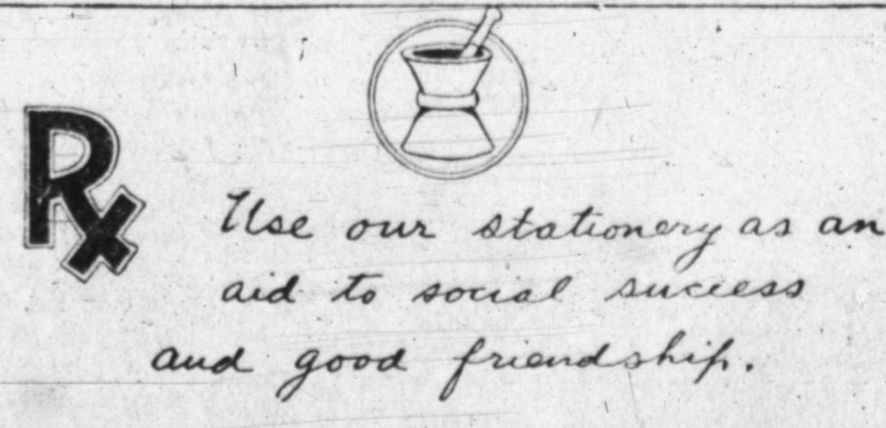 Rx
Use our stationery as an
aid to social success
and good friendship.